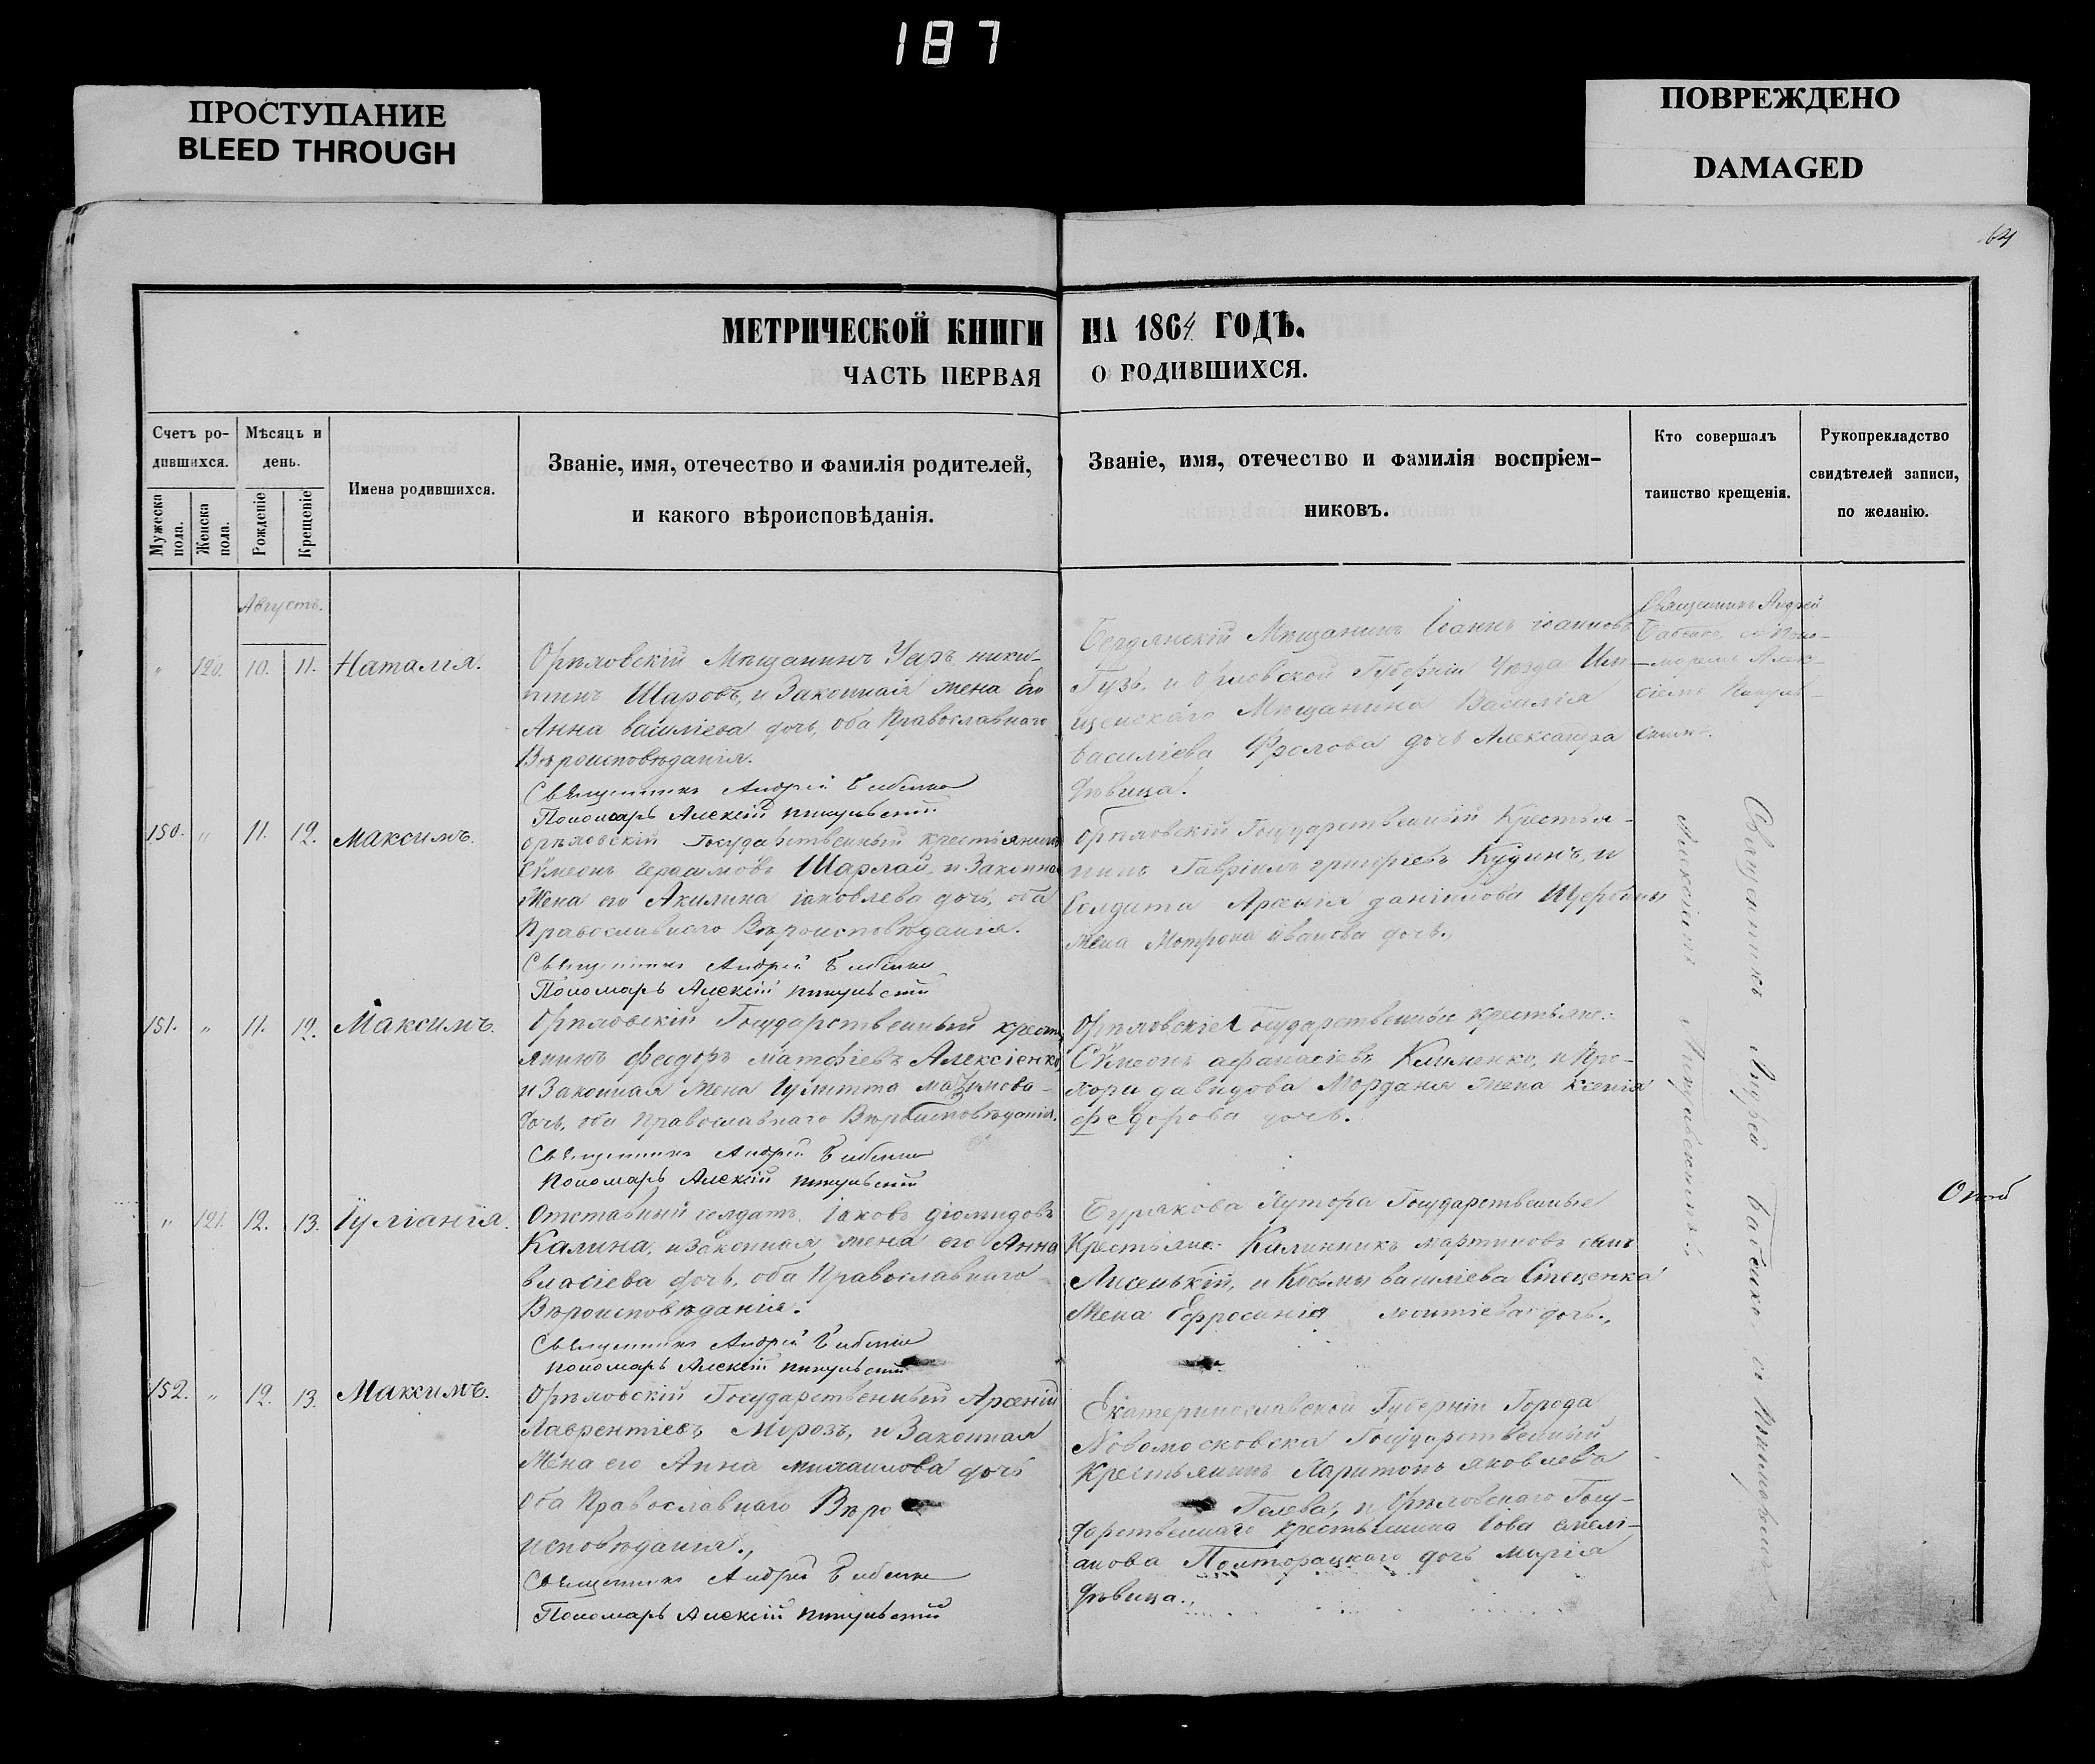 187
ПРОСТУПАНИЕ
BLEED THROUGH
ПОВРЕЖДЕНО
DAMAGED
64
МЕТРИЧЕСКОЙ КНИГИ НА 1864 ГОДЪ.
ЧАСТЬ ПЕРВАЯ О РОДИВШИХСЯ.
Счетъ ро-
дившихся.
Мужеска
пола.
Женска
пола.
Мѣсяць и
день.
Рожденіе
Крещеніе
Имена родившихся.
Званіе, имя, отечество и фамилія родителей,
и какого вѣроисповѣданія.
Званіе, имя, отечество и фамилія воспріем-
никовъ.
Кто совершалъ
таинство крещенія.
Рукоприкладство
свидѣтелей записи,
по желанію.
Августъ.
" 120. 10. 11. Наталія.
Орѣховскій Мѣщанинъ Уаръ ники-
тинъ Шаровъ, и Законная жена его
Анна василіева дочь, оба Православнаго
Вѣроисповѣданія.
Священникъ Андрей Бабенко
Пономарь Алексій
Бердянскій Мѣщанинъ Іоаннъ іоанновъ
Гузь, и Орловской Губерніи Уѣзда
Мѣщанина Василія
василіева Фролова дочь Александра
дѣвица.
Священникъ Андрей
Бабенко, съ Поно-
маремъ Алек-
сіемъ
150. " 11. 12. Максимъ.
орѣховскій Государственный крестіянинъ
Сѵмеонъ герасимовъ Шарлай, и Законная
Жена его Акилина іаковлева дочь, оба
Православнаго Вѣроисповѣданія.
Священникъ Андрей Бабенко
Пономарь Алексій
орѣховскій Государственный Крестья-
нинъ Гавріилъ григоріевъ Кудинъ, и
Солдата Арсенія даніилова Щербины
жена Мотрона иванова дочь.,
151. " 11. 12. Максимъ.
Орѣховскій Государственный крестъ
янинъ феодоръ матфіевъ Алексіенко,
и Законная Жена Іулитта
дочь, оба Православнаго Вѣроисповѣданія.
Священникъ Андрей Бабенко
Пономарь Алексій
Орѣховскіе Государственные крестьяне:
Сѵмеонъ афанасіевъ Клименко, и Про-
хора давидова Морданя жена ксенія
федорова дочь.
" 121. 12. 13. Іуліанія.
Отставный солдатъ Іаковъ діомидовъ
Калина, и Законная жена его Анна
власіева дочь, оба Православнаго
Вѣроисповѣданія.
Священникъ Андрей Бабенко
Пономарь Алексій
Бурякова Хутора Государственные
Крестьяне: Калинникъ мартиновъ сынъ
Лисенькій, и Косьмы василіева Стеценка
Жена Ефросинія леонтіева дочь.,
152. " 12. 13. Максимъ.
Орѣховскій Государственный Арсеній
Лаврентіевъ Морозъ, и Законная
Жена его Анна михаилова дочь
оба Православнаго Вѣро
исповѣданія.,
Священникъ Андрей Бабенко
Пономарь Алексій
Екатеринославской Губерніи Города
Новомосковска Государственный
Крестьянинъ Харитонъ яковлевъ
и Орѣховскаго Госу-
дарственнаго крестьянина Іова емелі-
анова Полторацкаго дочь марія
дѣвица.,
Священникъ Андрей Бабенко съ Пономаремъ
Алексіемъ